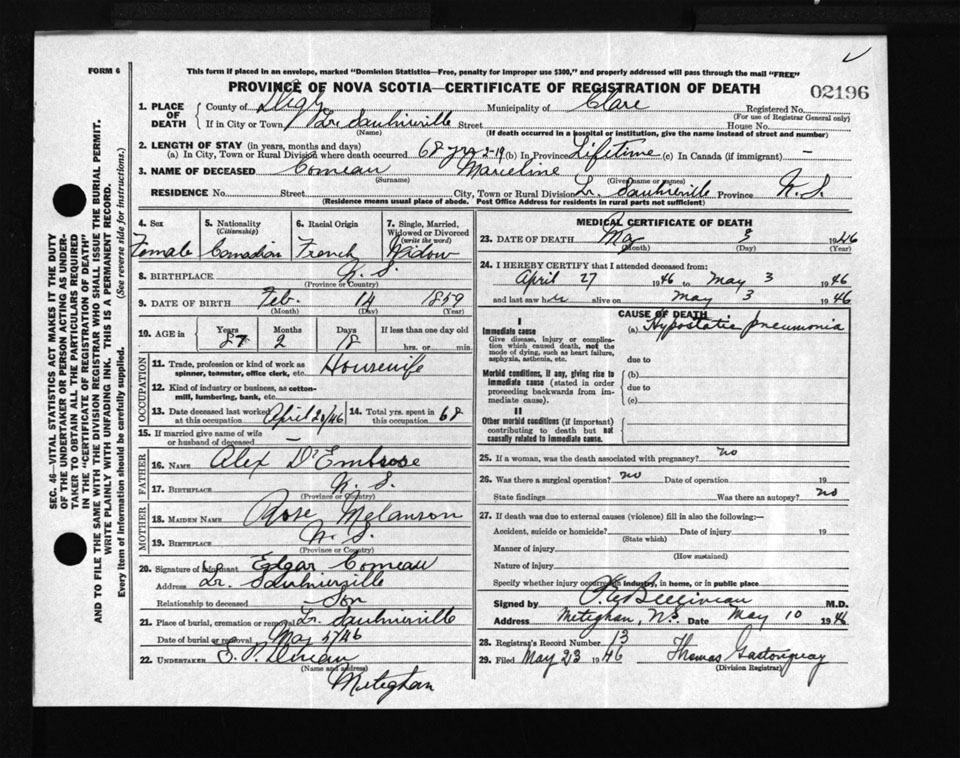 FORM 6
This form if placed in an envelope, marked "Dominion Statistics—Free, penalty for improper use $300," and properly addressed will pass through the mail "FREE"
PROVINCE OF NOVA SCOTIA—CERTIFICATE OF REGISTRATION OF DEATH
02196
1. PLACE OF DEATH County of Digby Municipality of Clare Registered No.
(For use of Registrar General only)
If in City or Town Lr Saulnierville Street House No.
(Name) (If death occurred in a hospital or institution, give the name instead of street and number)
2. LENGTH OF STAY (in years, months and days)
(a) In City, Town or Rural Division where death occurred 68 yrs 2-19 (b) In Province Lifetime (c) In Canada (if immigrant) —
3. NAME OF DECEASED Comeau Marceline
(Surname) (Given name or names)
RESIDENCE No. Street City, Town or Rural Division Lr. Saulnierville Province N.S.
(Residence means usual place of abode. Post Office Address for residents in rural parts not sufficient)
4. Sex Female
5. Nationality (Citizenship) Canadian
6. Racial Origin French
7. Single, Married, Widowed or Divorced (write the word) Widow
8. BIRTHPLACE N.S.
(Province or Country)
9. DATE OF BIRTH Feb. 14 1859
(Month) (Day) (Year)
10. AGE in Years 87 Months 2 Days 18 If less than one day old
hrs. or min.
OCCUPATION
11. Trade, profession or kind of work as spinner, teamster, office clerk, etc. Housewife
12. Kind of industry or business, as cotton-mill, lumbering, bank, etc.
13. Date deceased last worked at this occupation April 20/46 14. Total yrs. spent in this occupation 68
15. If married give name of wife or husband of deceased —
FATHER
16. NAME Alex D'Embrose
17. BIRTHPLACE N.S.
(Province or Country)
MOTHER
18. MAIDEN NAME Rose Melanson
19. BIRTHPLACE N.S.
(Province or Country)
20. Signature of Informant Edgar Comeau
Address Lr. Saulnierville
Relationship to deceased Son
21. Place of burial, cremation or removal Lr. Saulnierville
Date of burial or removal May 5/46
22. UNDERTAKER
(Name and address)
Meteghan
MEDICAL CERTIFICATE OF DEATH
23. DATE OF DEATH May 3 1946
(Month) (Day) (Year)
24. I HEREBY CERTIFY that I attended deceased from:
April 27 1946 to May 3 1946
and last saw her alive on May 3 1946
CAUSE OF DEATH
I
Immediate cause
Give disease, injury or complication which caused death, not the mode of dying, such as heart failure, asphyxia, asthenia, etc.
(a) Hypostatic pneumonia
due to
Morbid conditions, if any, giving rise to immediate cause (stated in order proceeding backwards from immediate cause).
(b)
due to
(c)
II
Other morbid conditions (if important) contributing to death but not causally related to immediate cause.
25. If a woman, was the death associated with pregnancy? no
26. Was there a surgical operation? no Date of operation 19
State findings Was there an autopsy? no
27. If death was due to external causes (violence) fill in also the following:—
Accident, suicide or homicide? Date of injury 19
(State which)
Manner of injury
(How sustained)
Nature of injury
Specify whether injury occurred in industry, in home, or in public place
Signed by M.D.
Address Meteghan, N.S. Date May 10 1946
28. Registrar's Record Number 13
29. Filed May 23 1946 Thomas Gastonguay
(Division Registrar)
SEC. 46—VITAL STATISTICS ACT MAKES IT THE DUTY
OF THE UNDERTAKER OR PERSON ACTING AS UNDER-
TAKER TO OBTAIN ALL THE PARTICULARS REQUIRED
IN THE "CERTIFICATE OF REGISTRATION OF DEATH"
AND TO FILE THE SAME WITH THE DIVISION REGISTRAR WHO SHALL ISSUE THE BURIAL PERMIT.
WRITE PLAINLY WITH UNFADING INK. THIS IS A PERMANENT RECORD.
Every item of information should be carefully supplied. (See reverse side for instructions.)